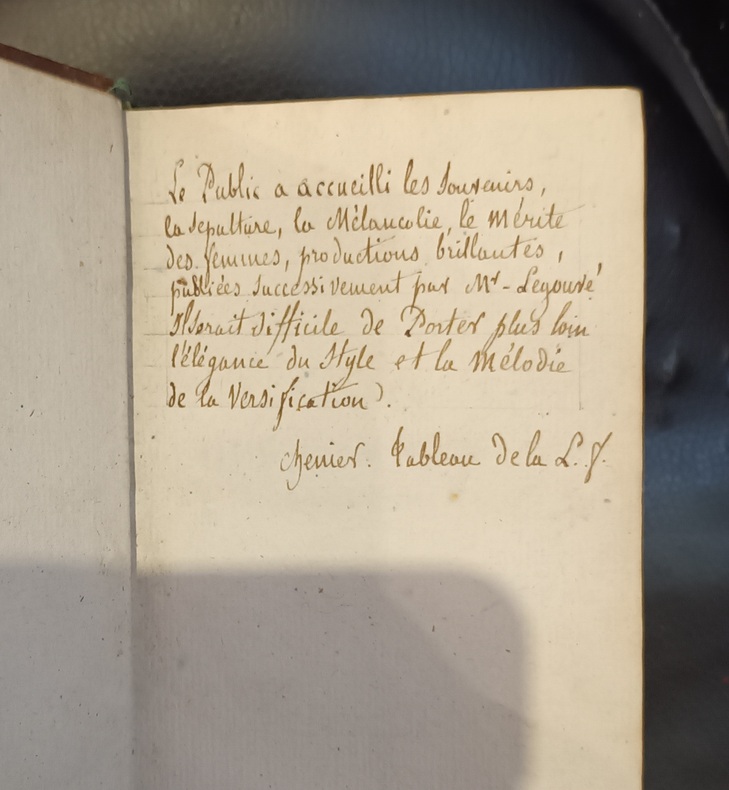 Le Public a accueilli les Souvenirs,
la Sépulture, la Mélancolie, le Mérite
des femmes, productions brillantes,
publiées successivement par Mr - Legouvé
Il serait difficile de Porter plus loin
l'élégance du Style et la Mélodie
de la Versification).
chenier. Tableau de la L. f.